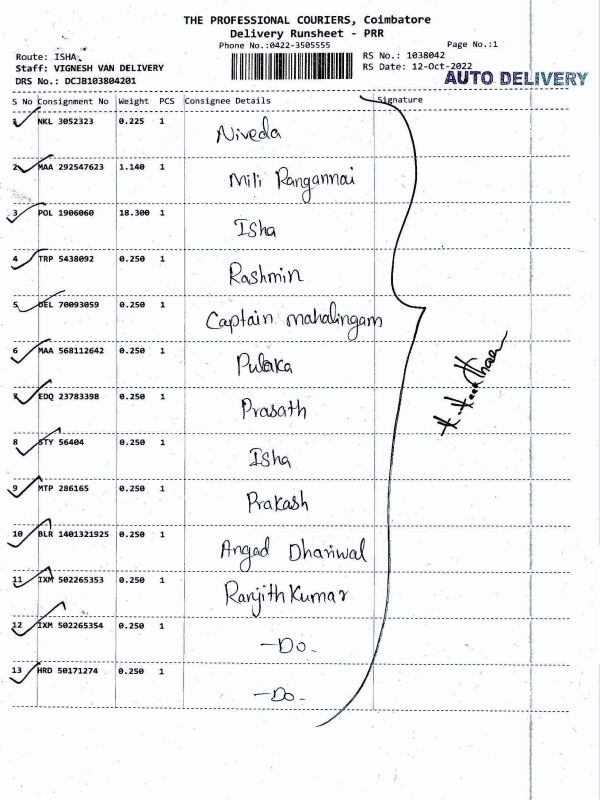 THE PROFESSIONAL COURIERS, Coimbatore
Delivery Runsheet - PRR
Phone No.:0422-3505555 Page No.:1
Route: ISHA RS No.: 1038042
Staff: VIGNESH VAN DELIVERY RS Date: 12-Oct-2022
DRS No.: DCJB103804201 AUTO DELIVERY
S No Consignment No Weight PCS Consignee Details Signature
1 NKL 3052323 0.225 1 Niveda
2 MAA 292547623 1.140 1 Mili Rangannai
3 POL 1906060 18.300 1 Isha
4 TRP 5438092 0.250 1 Rashmin
5 DEL 70093059 0.250 1 Captain mahalingam
6 MAA 568112642 0.250 1
7 EDQ 23783398 0.250 1 Prasath
8 STY 56404 0.250 1 Isha
9 MTP 286165 0.250 1 Prakash
10 BLR 1401321925 0.250 1 Angad Dhariwal
11 IXM 502265353 0.250 1 Ranjith Kumar
12 IXM 502265354 0.250 1 -Do-
13 HRD 50171274 0.250 1 -Do-